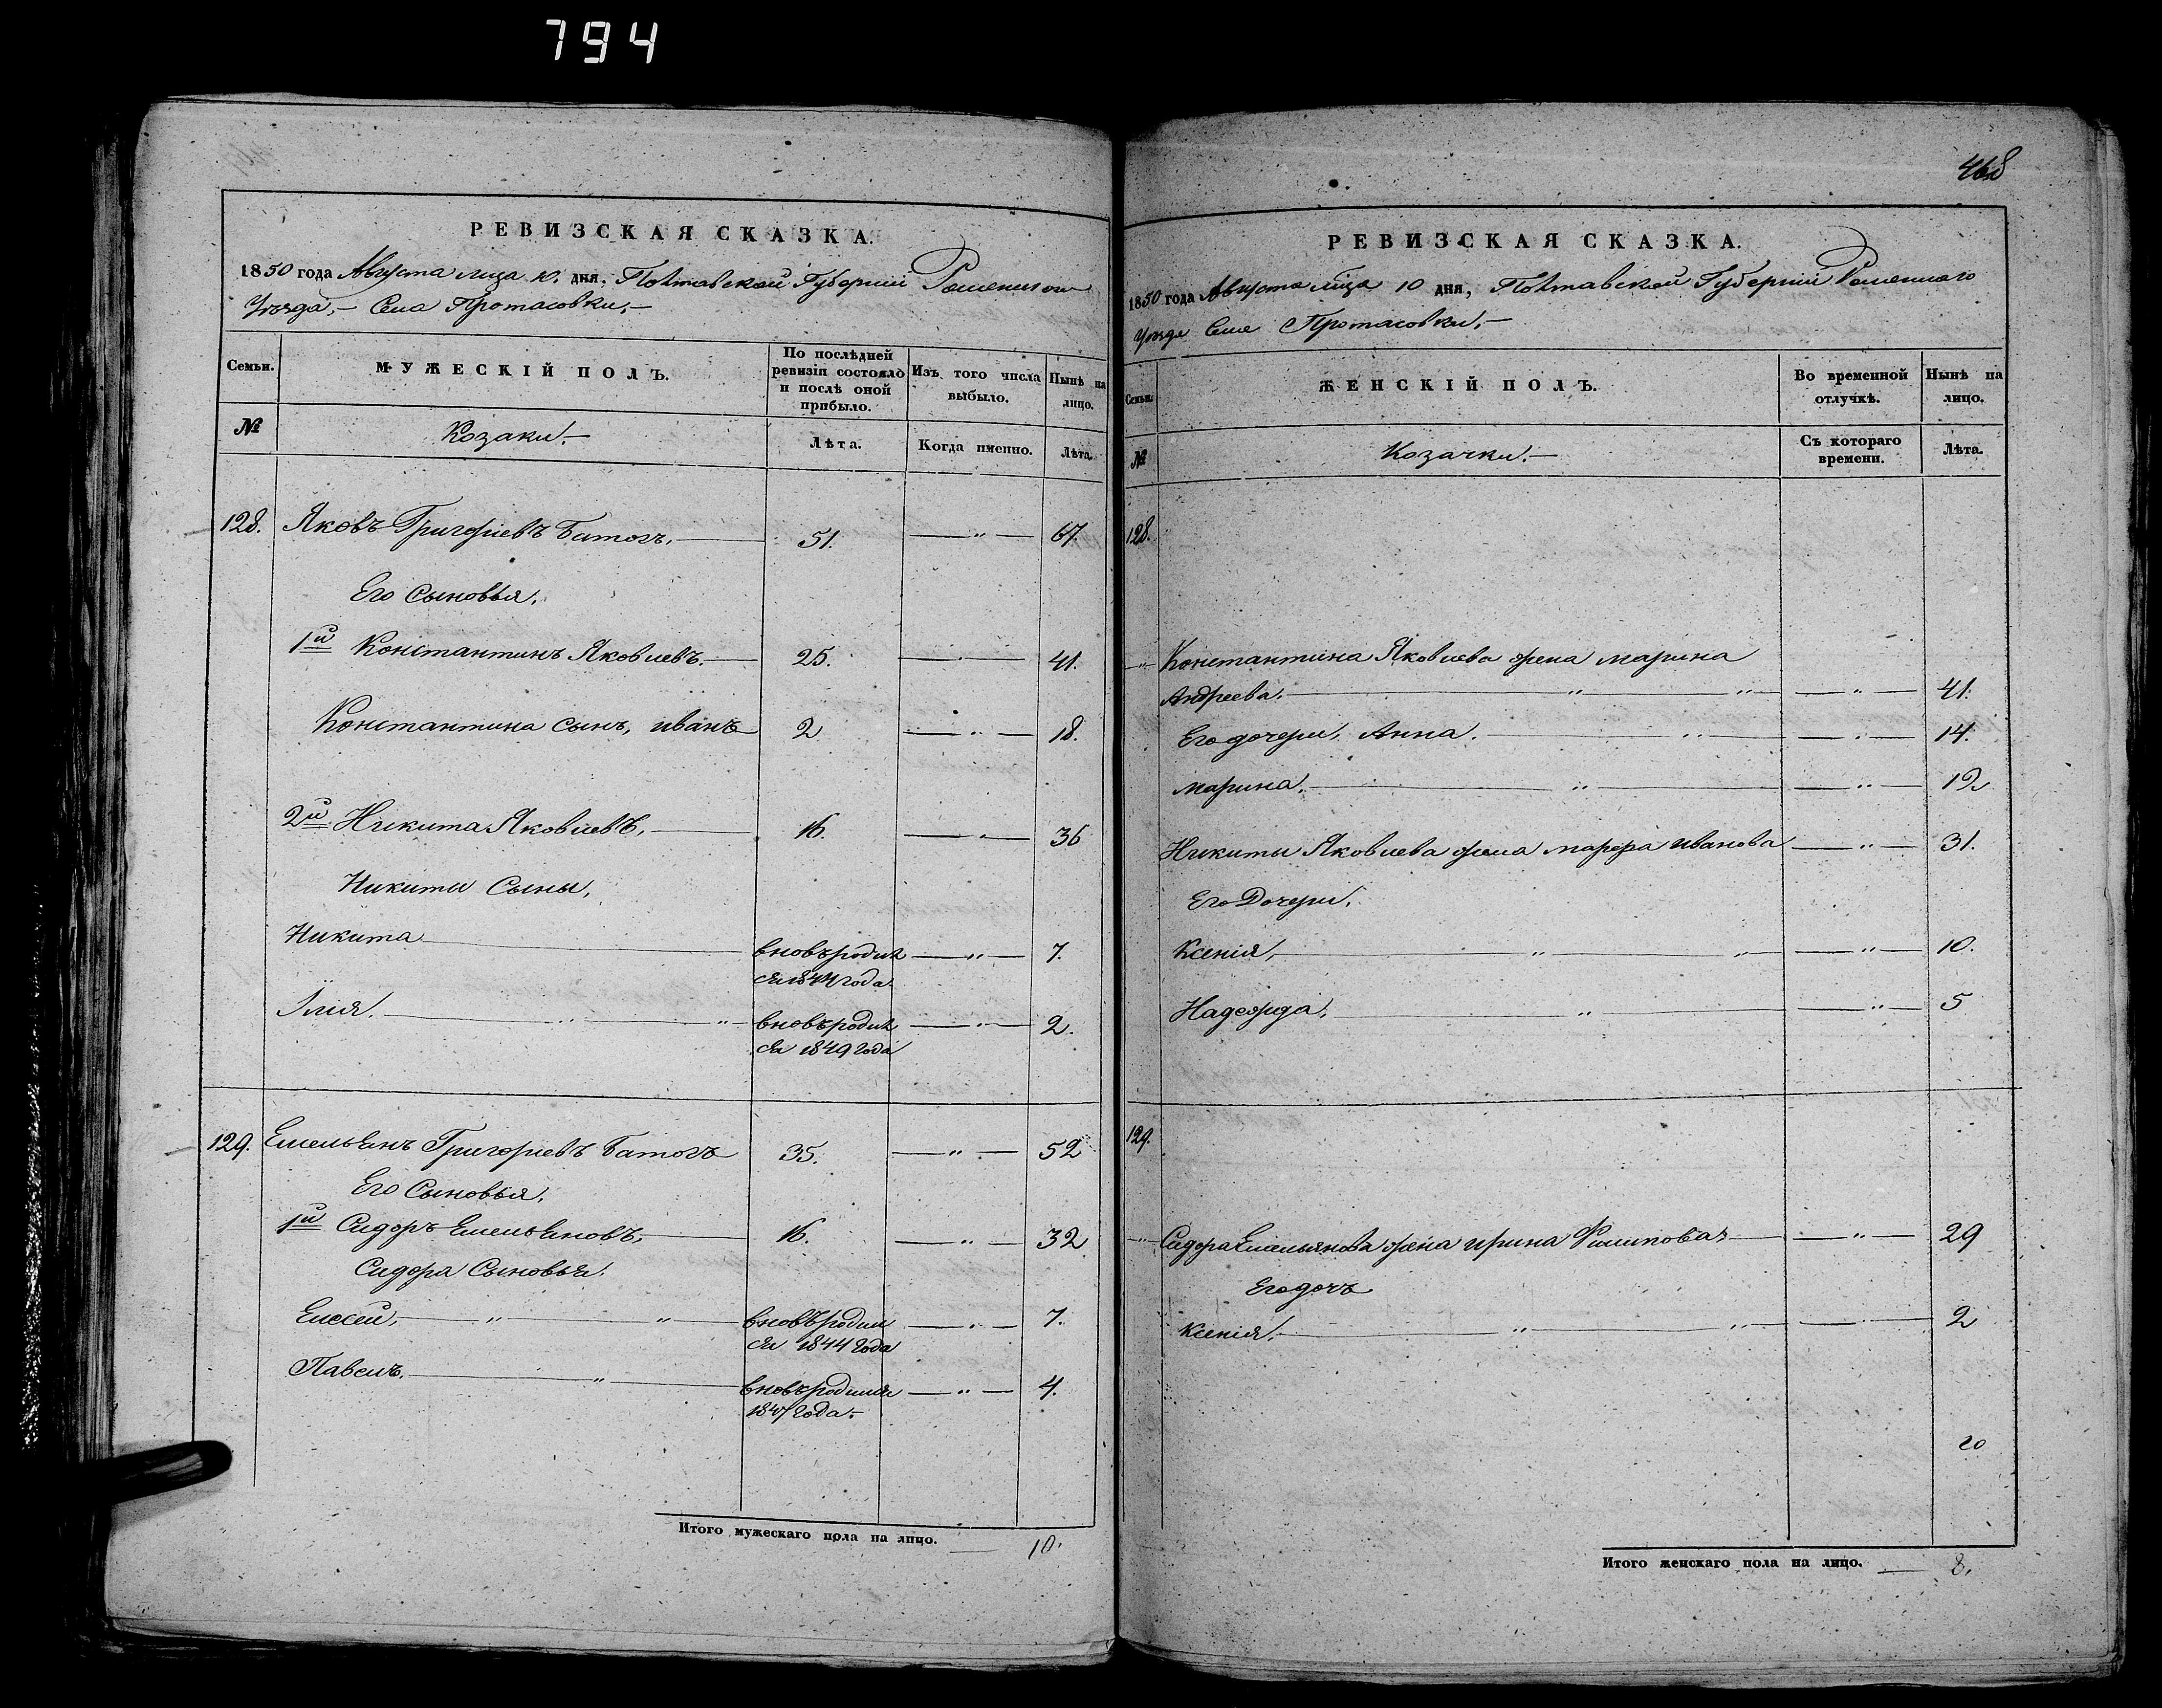 794
РЕВИЗСКАЯ СКАЗКА.
1850 года Августа мца 10. дня, Полтавской Губерніи Роменскаго
Уѣзда, – Села Протасовки, –
Семьи.
МУЖЕСКІЙ ПОЛЪ.
По послѣдней ревизіи состояло и послѣ оной прибыло.
Изъ того числа выбыло.
Нынѣ на лицо.
№
Козаки. –
Лѣта.
Когда именно.
Лѣта.
128. Яковъ Григоріевъ Батогъ. 51. — " — 67.
Его Сыновья,
1й Константинъ Яковлевъ. 25. — " — 41.
Константина сынъ, иванъ 2 — " — 18.
2й Никита Яковлевъ, 16. — " — 36
Никиты Сыны,
Никита вновьродил — " — 7.
ся 1844 года
Ілія. " " вновьродил — " — 2.
ся 1849 года
129. Емельянъ Григоріевъ Батогъ 35. — " — 52
Его Сыновья,
1й Сидоръ Емельяновъ, 16. — " — 32
Сидора Сыновья.
Елисей, " " вновьродил — " — 7.
ся 1844 года
Павелъ. " вновьродился — " — 4.
1847 года. –
Итого мужескаго пола на лицо. — 10.
468
РЕВИЗСКАЯ СКАЗКА.
1850 года Августа мца 10 дня, Полтавской Губерніи Роменскаго
Уѣзда Села Протасовки, –
Семьи.
ЖЕНСКІЙ ПОЛЪ.
Во временной отлучкѣ.
Нынѣ на лицо.
№
Козачки. –
Съ котораго времени.
Лѣта.
128.
" Константина Яковлева жена марина
Андреева. " " — " — 41.
Его дочери, Анна. " — " — 14.
марина. " — " — 12
Никиты Яковлева жена марфа иванова — " — 31.
Его Дочери,
Ксенія, " " — " — 10.
Надежда, " — " — 5
129.
" Сидора Емельянова жена ирина Филипова — " — 29
Его дочь
Ксенія. " " — " — 2
Итого женскаго пола на лицо. — 8.